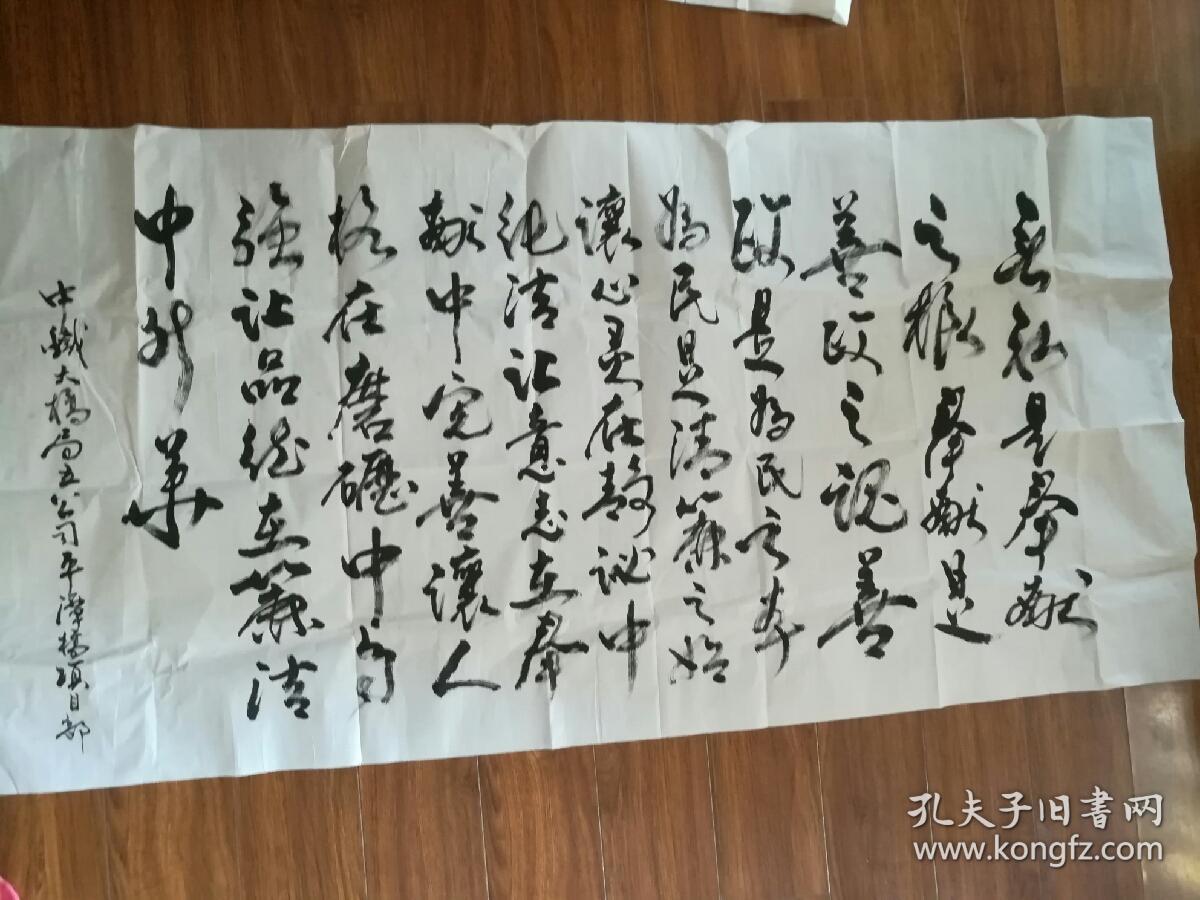 无私是奉献
之根奉献是
善政之魂善
政是为民之本
为民是清廉之始
让心灵在静谧中
纯洁让意志在奉
献中完善让人
格在磨砺中自
强让品德在廉洁
中升华
中铁大桥局五公司平潭桥项目部
孔夫子旧书网
www.kongfz.com